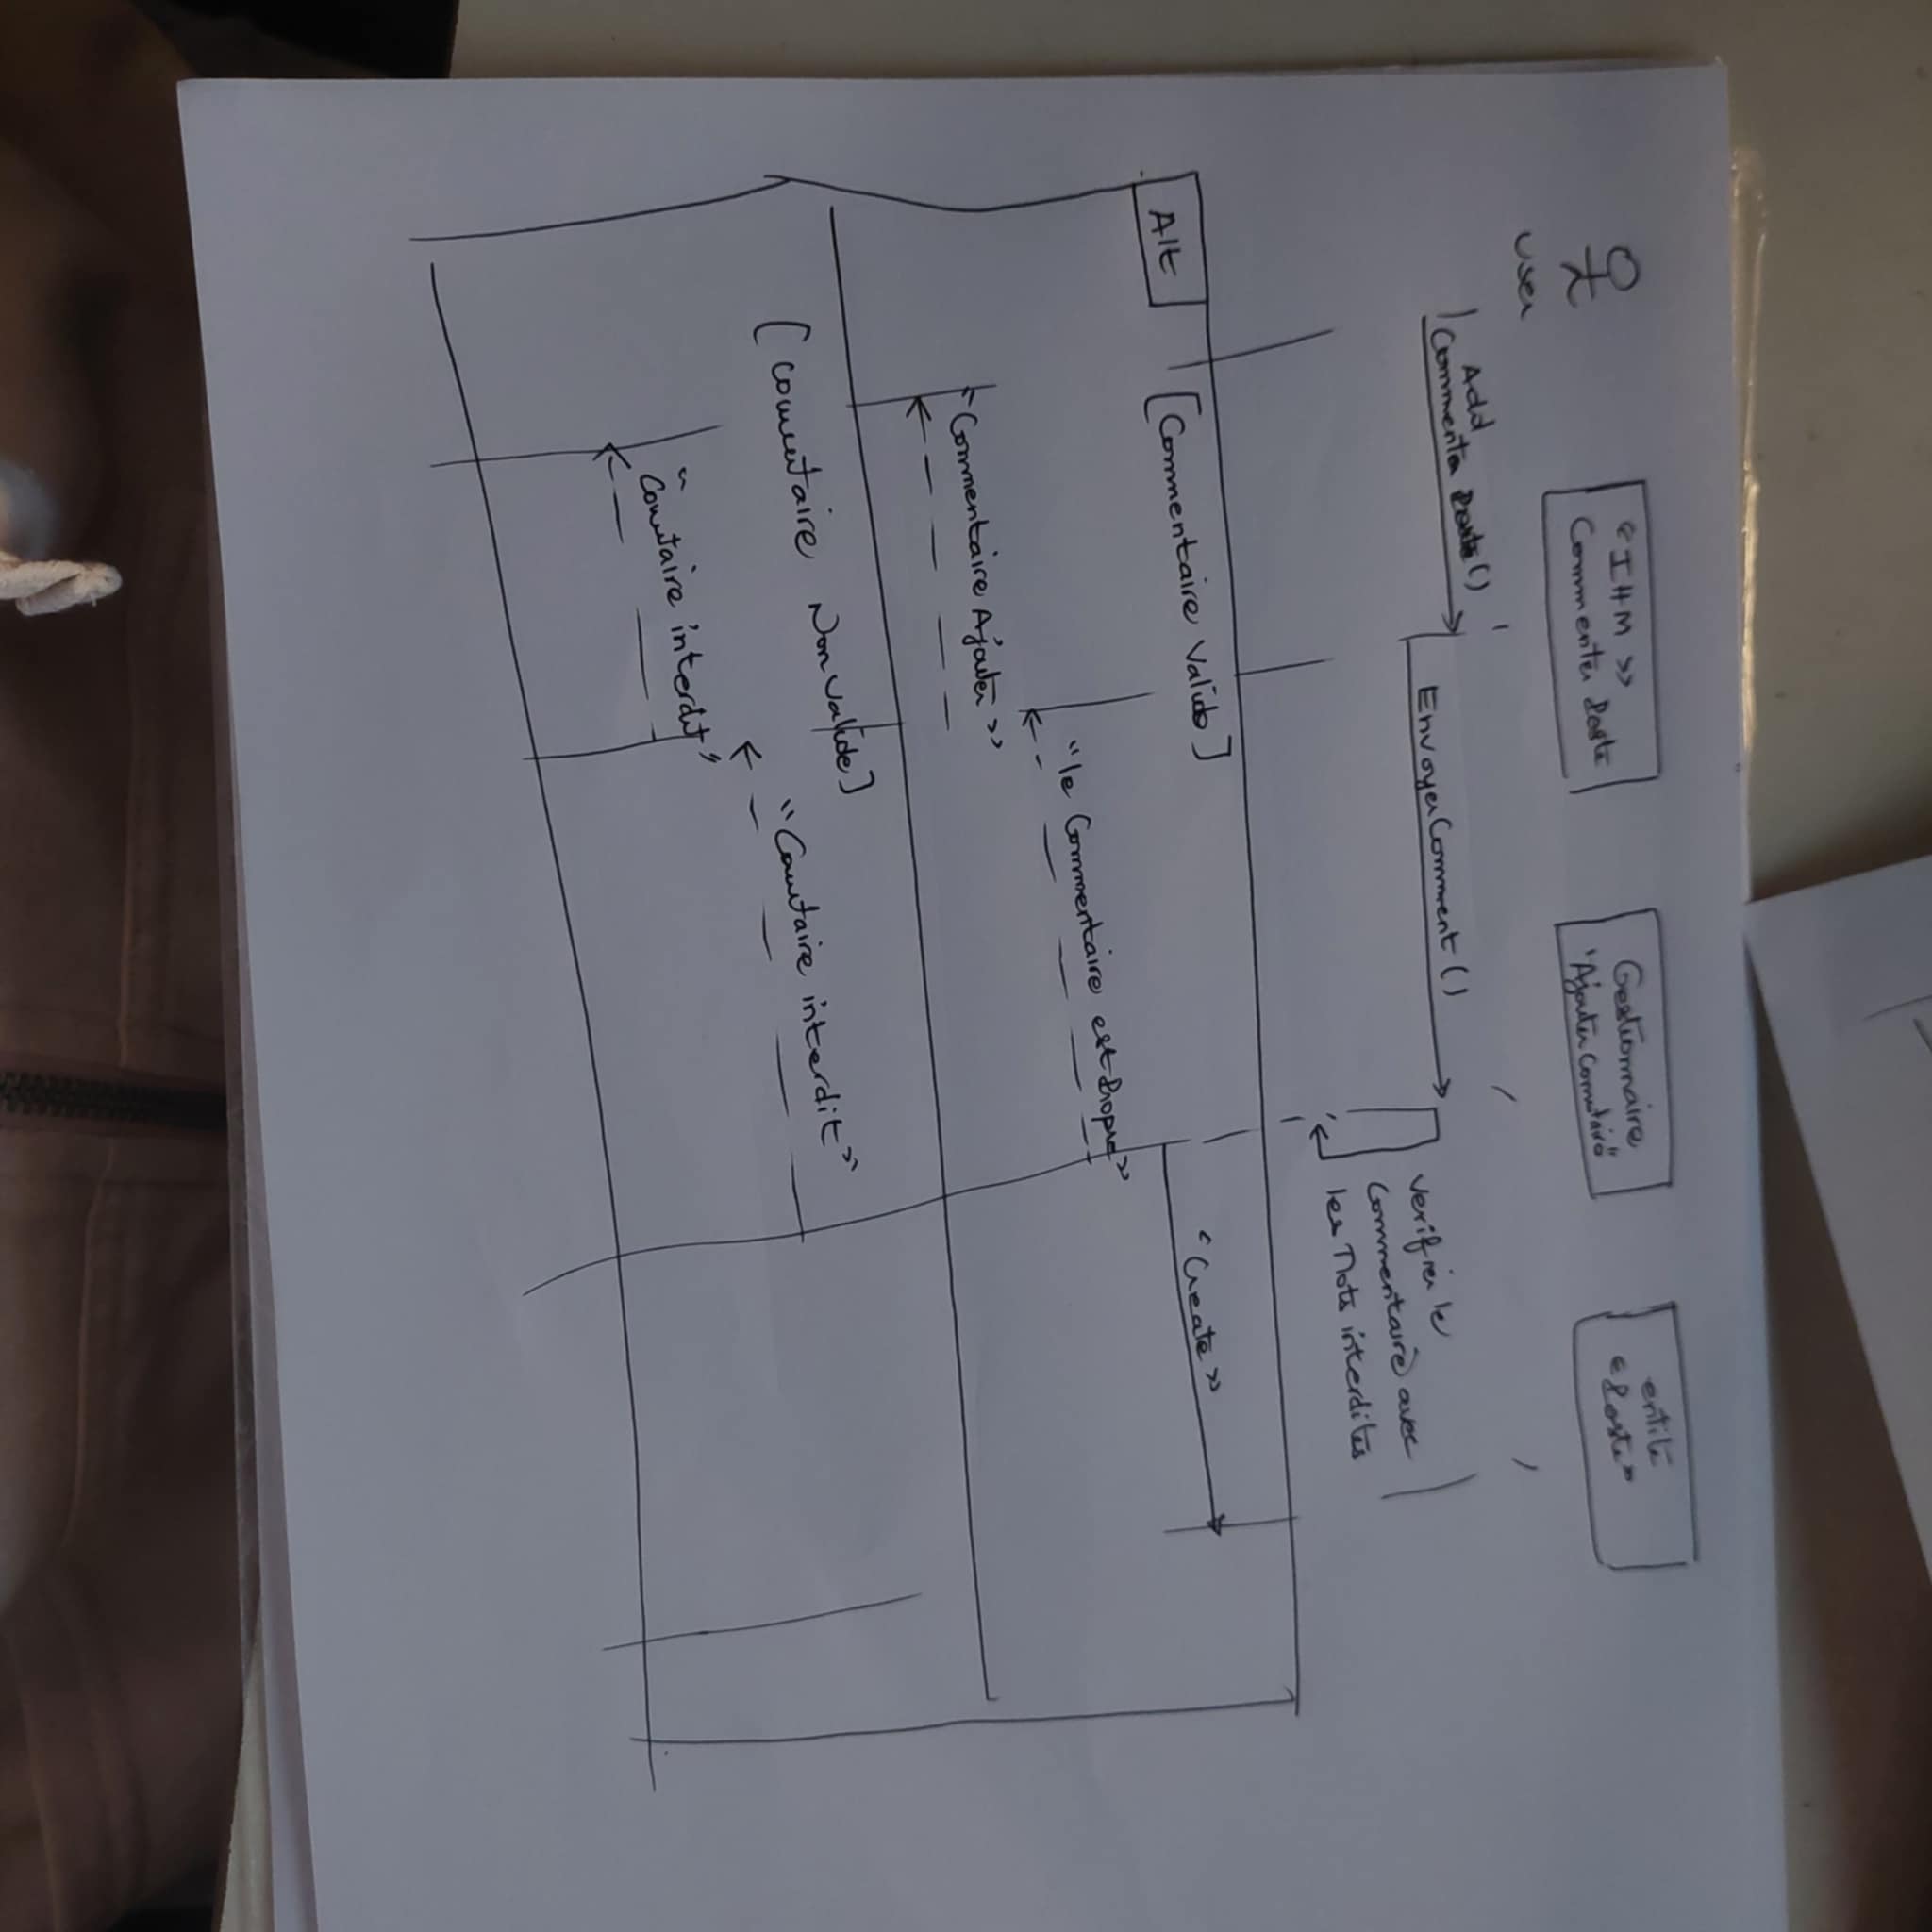 User
« IHM »
Commenter Poste
Gestionnaire
"Ajouter Comntaire"
entité
« Poste »
Add
Commenta Poste()
EnvoyerComment()
Verifier le
Commentaire avec
les Mots interdites
Alt
[Commentaire Valide]
« Create »
"le Commentaire est Propre»
"Commentaire Ajouter »
[Commentaire Non valide]
"Comntaire interdit"
"Comntaire interdit"